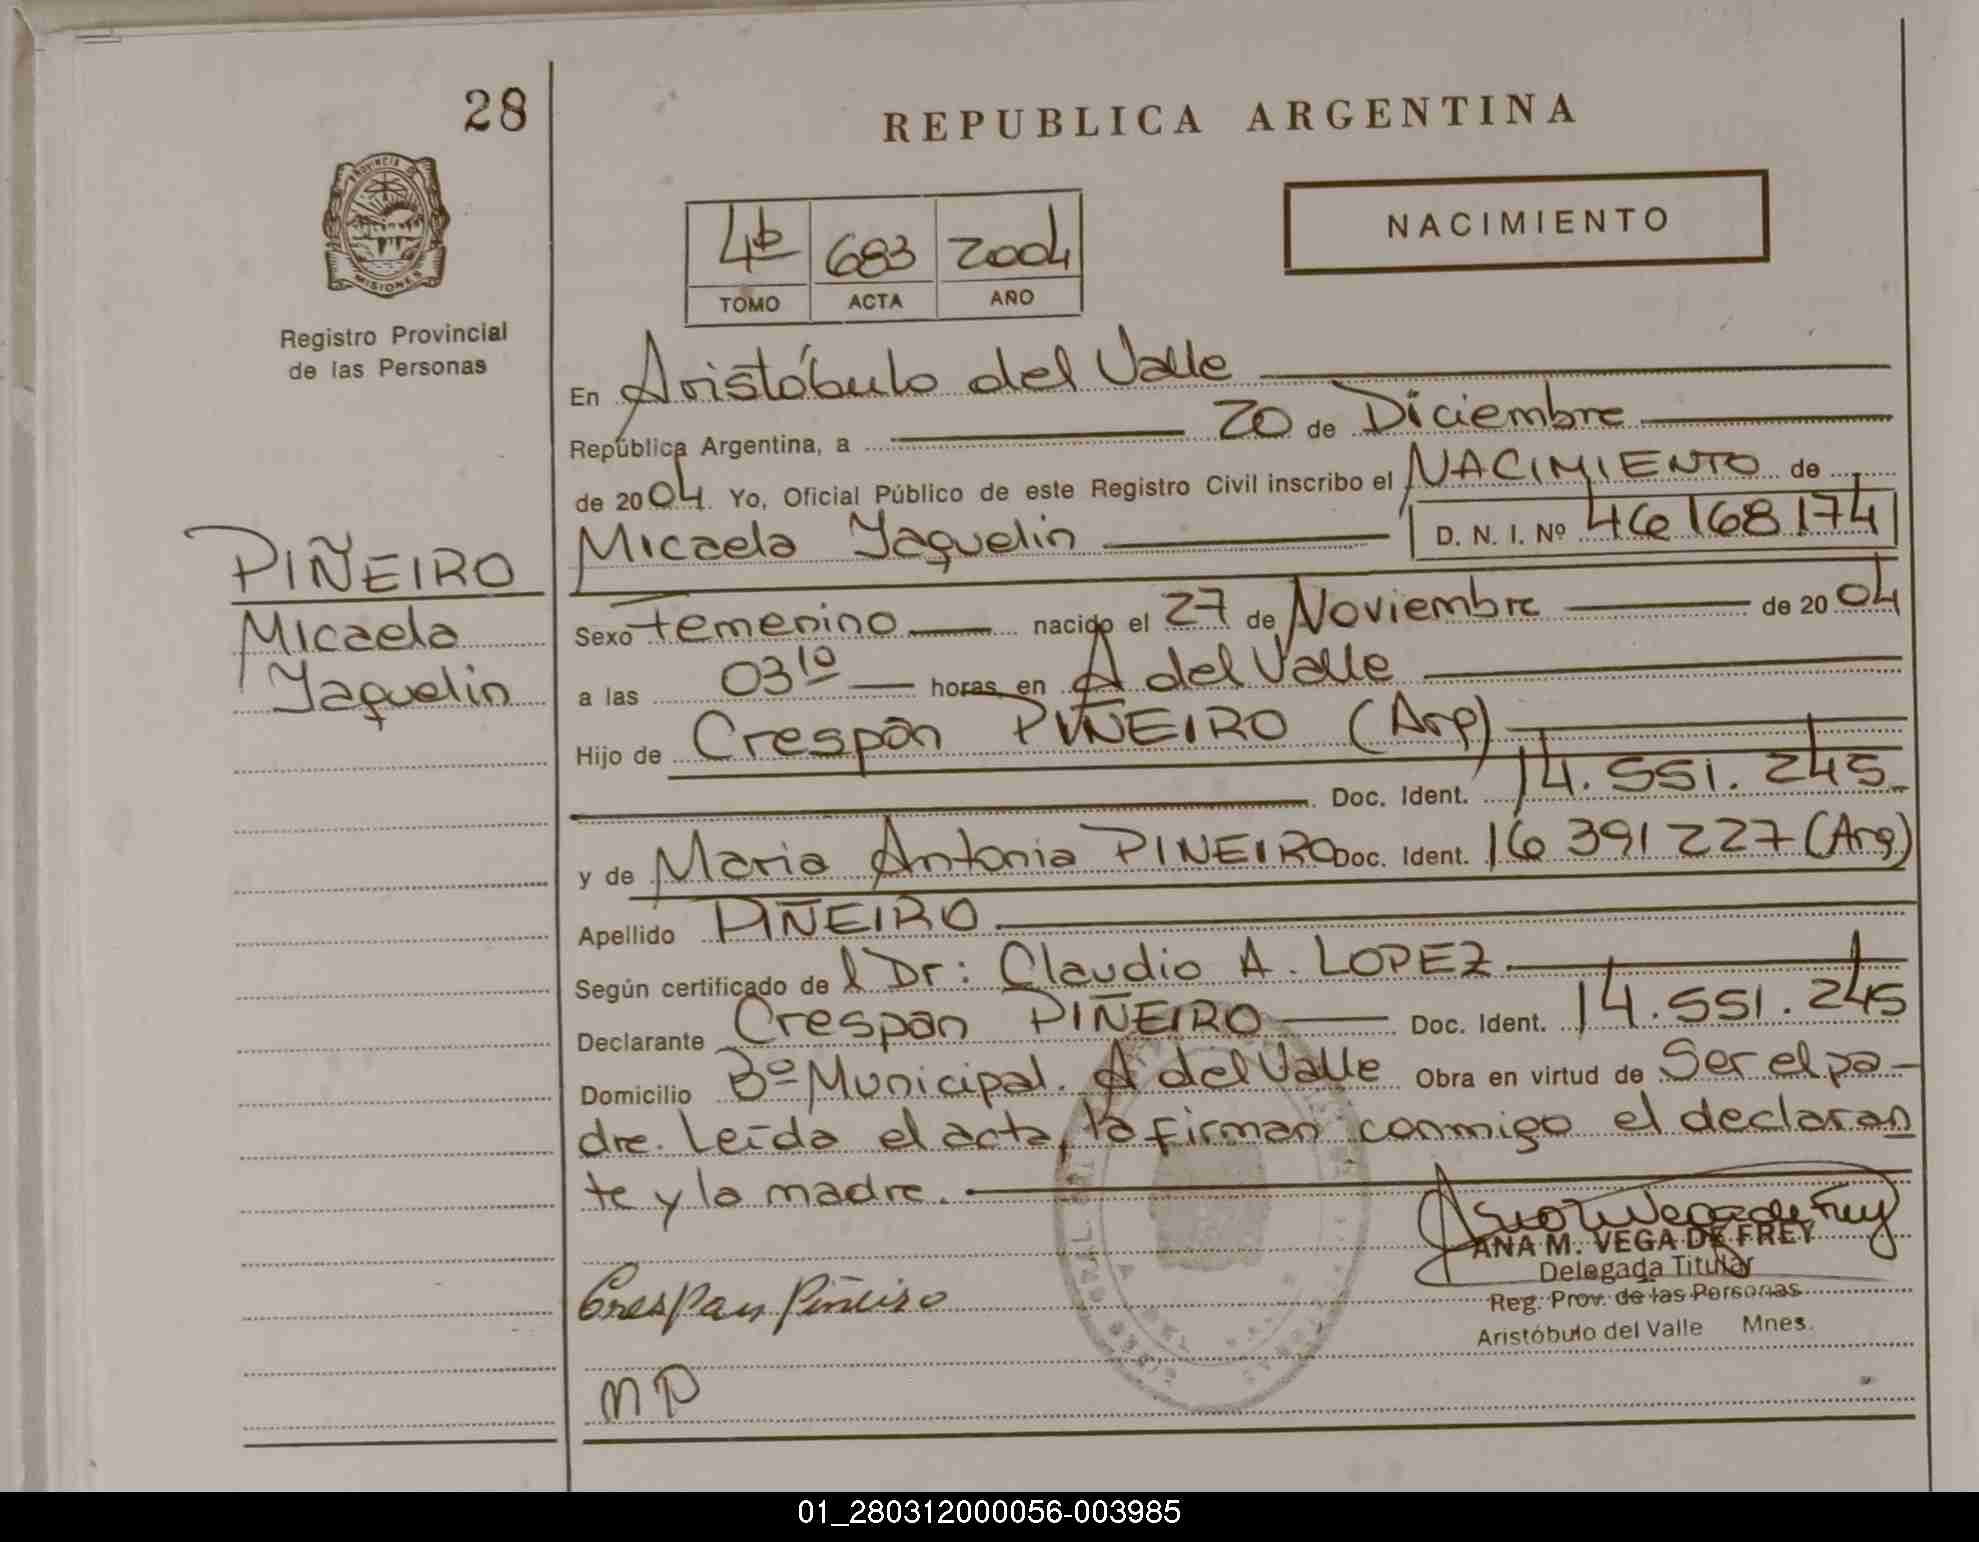 28
REPUBLICA ARGENTINA
PROVINCIA DE
MISIONES
Registro Provincial
de las Personas
4b 683 2004
TOMO ACTA AÑO
NACIMIENTO
En Aristóbulo del Valle
República Argentina, a 20 de Diciembre
de 2004. Yo, Oficial Público de este Registro Civil inscribo el NACIMIENTO de
Micaela Yaquelin D. N. I. Nº 46168174
PIÑEIRO
Micaela
Yaquelin
Sexo Femenino nacido el 27 de Noviembre de 2004
a las 03 10 horas en A del Valle
Hijo de Crespan PIÑEIRO (Arg)
Doc. Ident. 14.551.245
y de Maria Antonia PINEIRO Doc. Ident. 16 391 227 (Arg)
Apellido PIÑEIRO
Según certificado de l Dr: Claudio A. LOPEZ
Declarante Crespan PIÑEIRO Doc. Ident. 14.551.245
Domicilio Bº Municipal. A del Valle Obra en virtud de Ser el pa-
dre. Leída el acta, la firman conmigo el declaran
te y la madre.
ANA M. VEGA DE FREY
Delegada Titular
Crespan Piñeiro
Reg. Prov. de las Personas
Aristóbulo del Valle Mnes.
MP
01_280312000056-003985